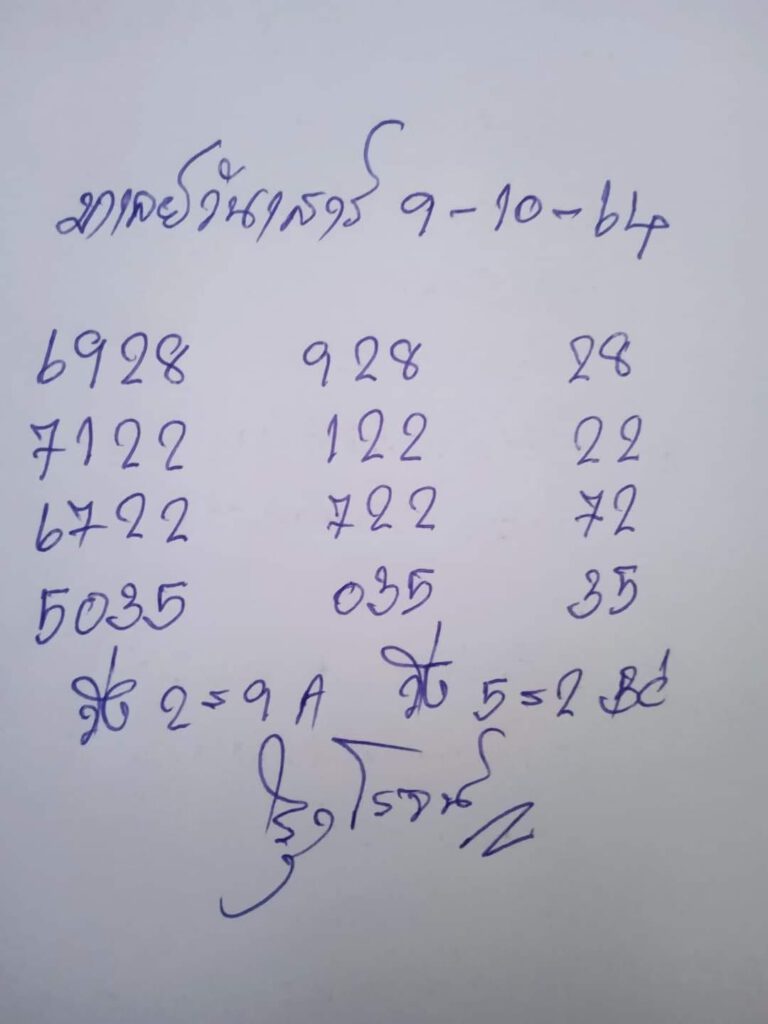 มาเลย์วันเสาร์ 9-10-64
6928 928 28
7122 122 22
6722 722 72
5035 035 35
2=9 A 5=2 BC
รุ่งโรจน์